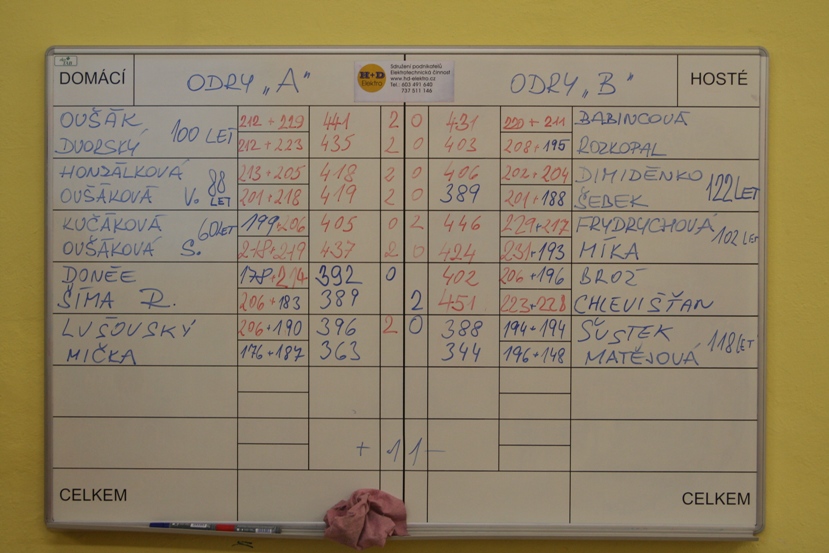 DOMÁCÍ ODRY „A" H+D Elektro Sdružení podnikatelů ODRY „B" HOSTÉ
Elektrotechnická činnost
www.hd-elektro.cz
Tel.: 603 491 640
737 511 146
OUŠÁK 100 LET 212 + 229 441 2 0 431 220 + 211 BABINCOVÁ
DVORSKÝ 212 + 223 435 2 0 403 208 + 195 ROZKOPAL
HONZÁLKOVÁ 88 LET 213 + 205 418 2 0 406 202 + 204 DIMIDĚNKO 122 LET
OUŠÁKOVÁ V. 201 + 218 419 2 0 389 201 + 188 ŠEBEK
KUČÁKOVÁ 60 LET 199 + 206 405 0 2 446 229 + 217 FRYDRYCHOVÁ 102 LET
OUŠÁKOVÁ S. 218 + 219 437 2 0 424 231 + 193 MÍKA
DONĚE 178 + 214 392 0 402 206 + 196 BROŽ
ŠÍMA R. 206 + 183 389 2 451 223 + 228 CHLEVIŠŤAN
LUŠOVSKÝ 206 + 190 396 2 0 388 194 + 194 ŠUSTEK 118 LET
MIČKA 176 + 187 363 344 196 + 148 MATĚJOVÁ
+ 1 1 -
CELKEM CELKEM